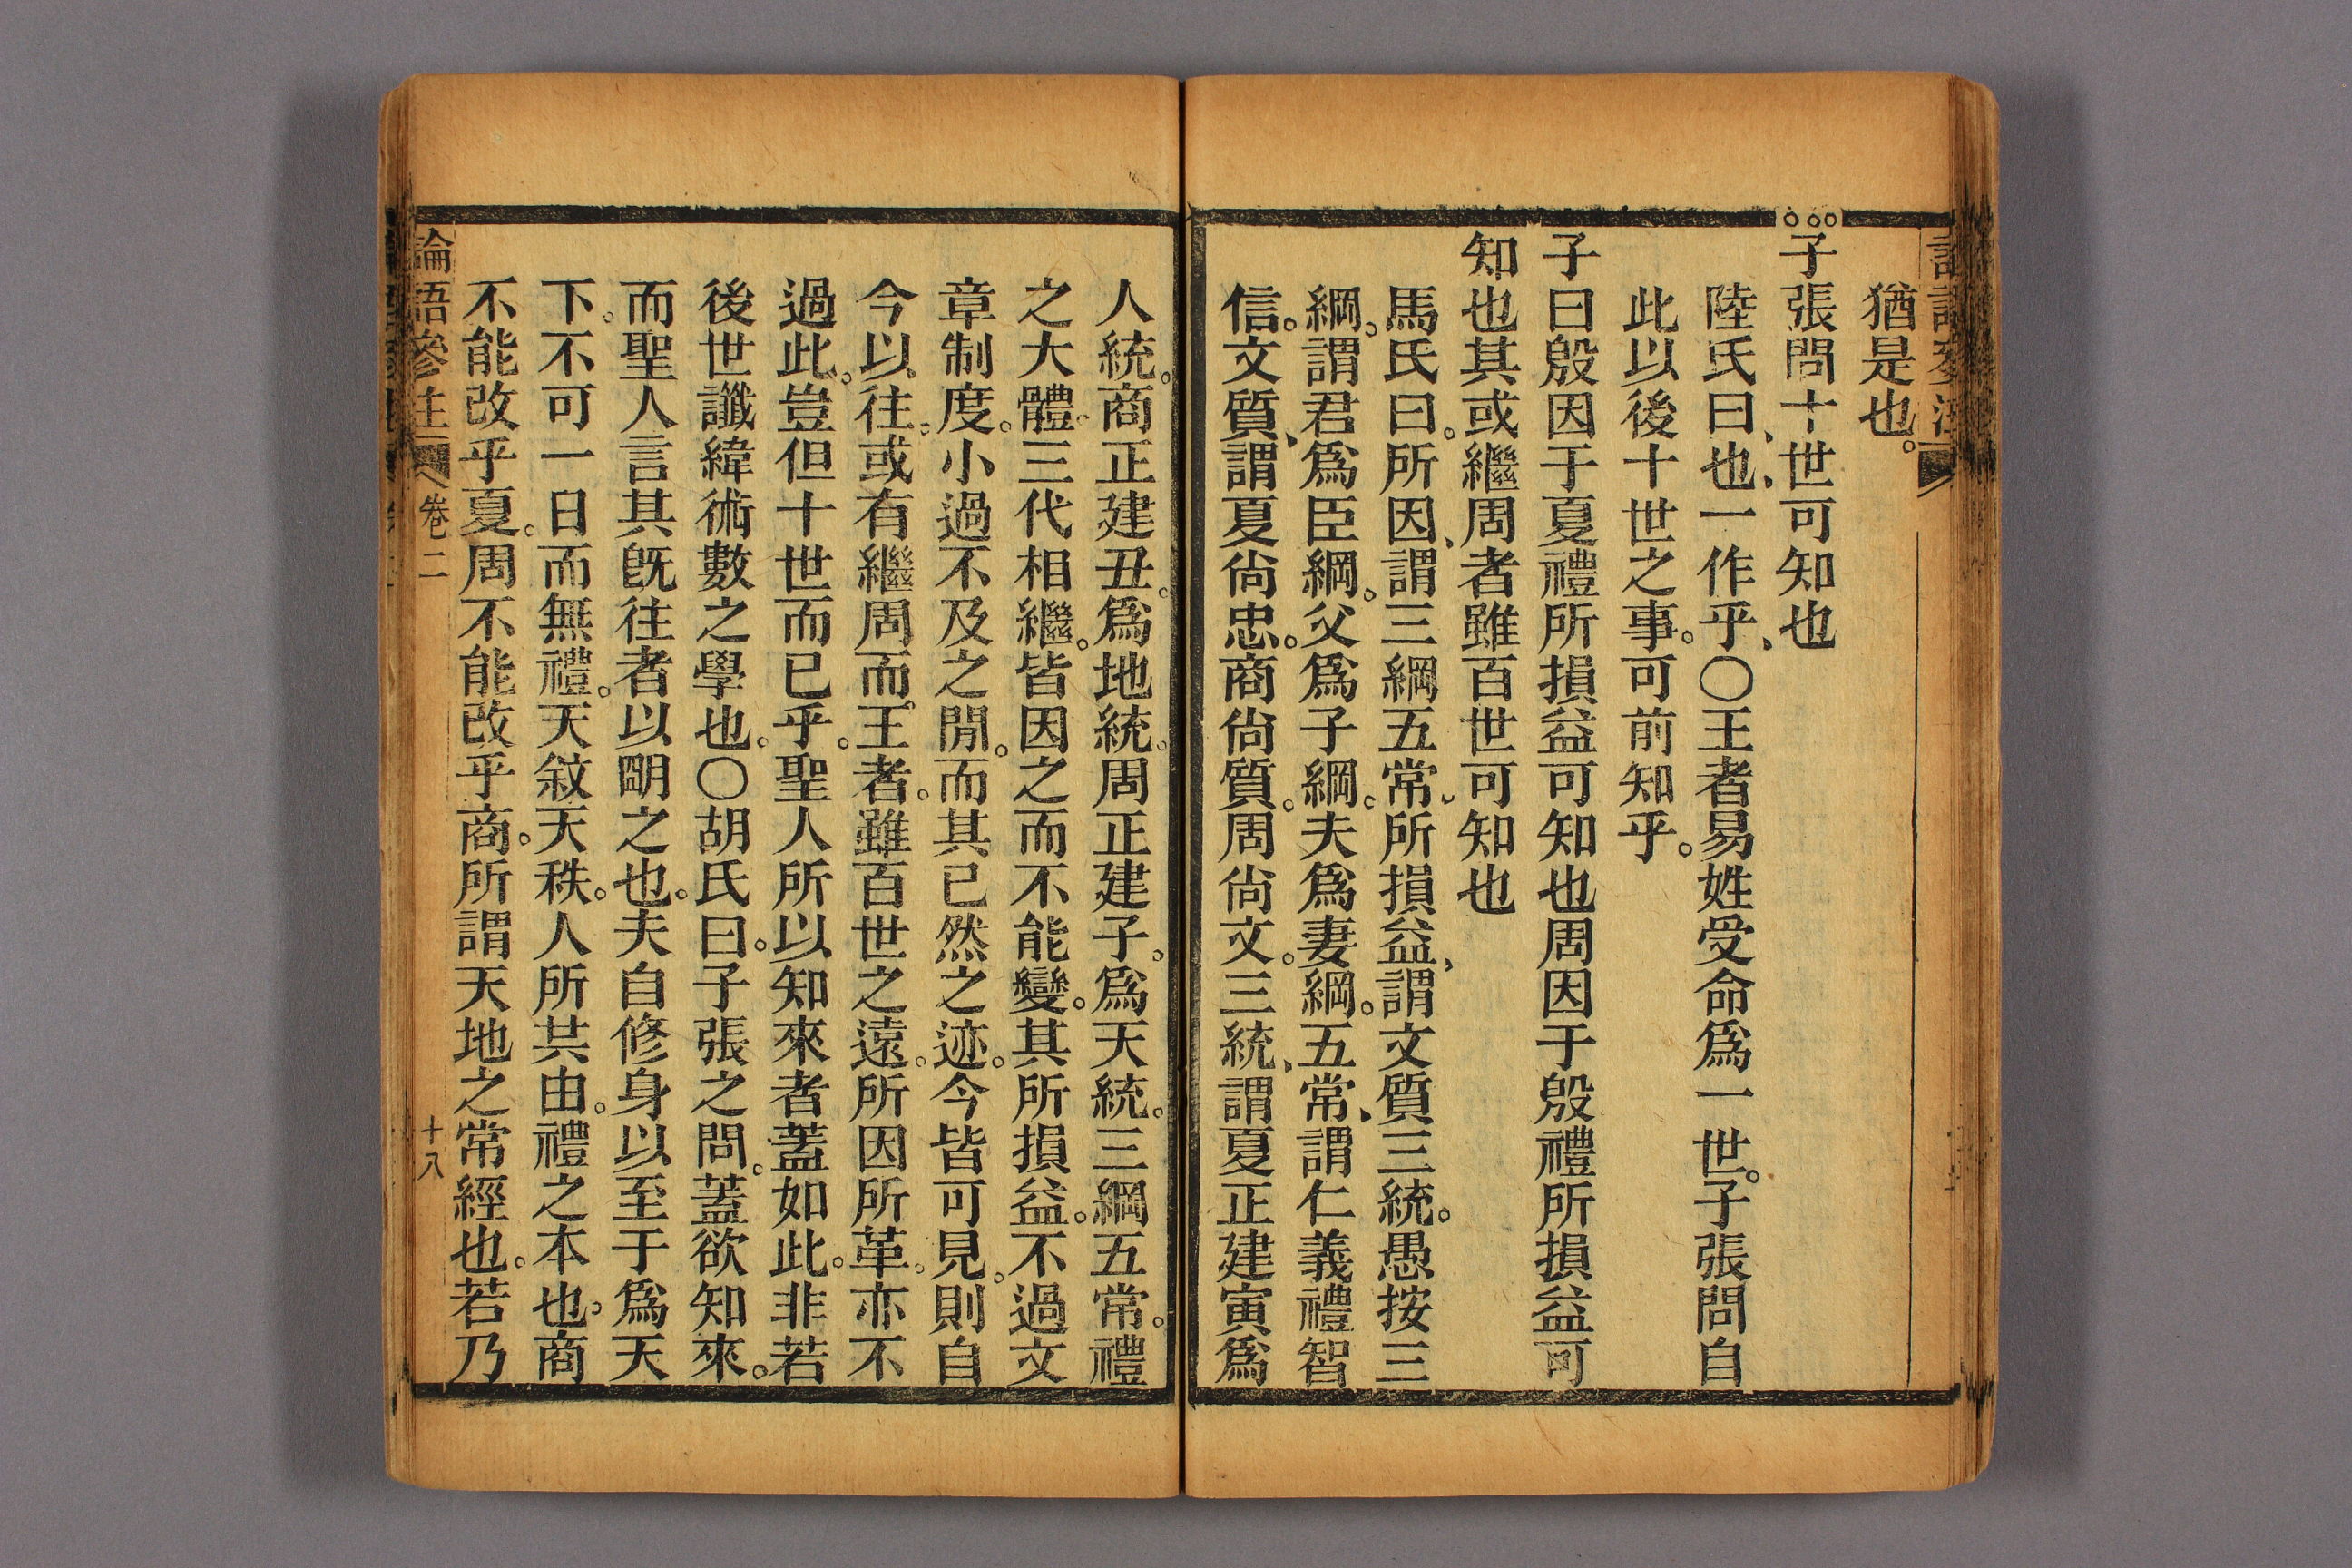 猶是也。
子張問十世可知也
陸氏曰、也、一作乎、〇王者易姓受命爲一世。子張問自
此以後十世之事。可前知乎。
子曰殷因于夏禮所損益可知也周因于殷禮所損益可
知也其或繼周者雖百世可知也
馬氏曰。所因、謂三綱五常、所損益、謂文質三統。愚按三
綱。謂君爲臣綱。父爲子綱。夫爲妻綱。五常、謂仁義禮智
信。文質、謂夏尙忠。商尙質。周尙文。三統、謂夏正建寅爲
人統。商正建丑。爲地統。周正建子。爲天統。三綱五常。禮
之大體。三代相繼。皆因之而不能變。其所損益。不過文
章制度。小過不及之閒。而其已然之迹。今皆可見。則自
今以往。或有繼周而王者。雖百世之遠。所因所革。亦不
過此。豈但十世而已乎。聖人所以知來者蓋如此。非若
後世讖緯術數之學也。〇胡氏曰。子張之問。蓋欲知來。
而聖人言其旣往者以明之也。夫自修身以至于爲天
下。不可一日而無禮。天敍天秩。人所共由。禮之本也。商
不能改乎夏。周不能改乎商。所謂天地之常經也。若乃
論語參註 卷二 十八